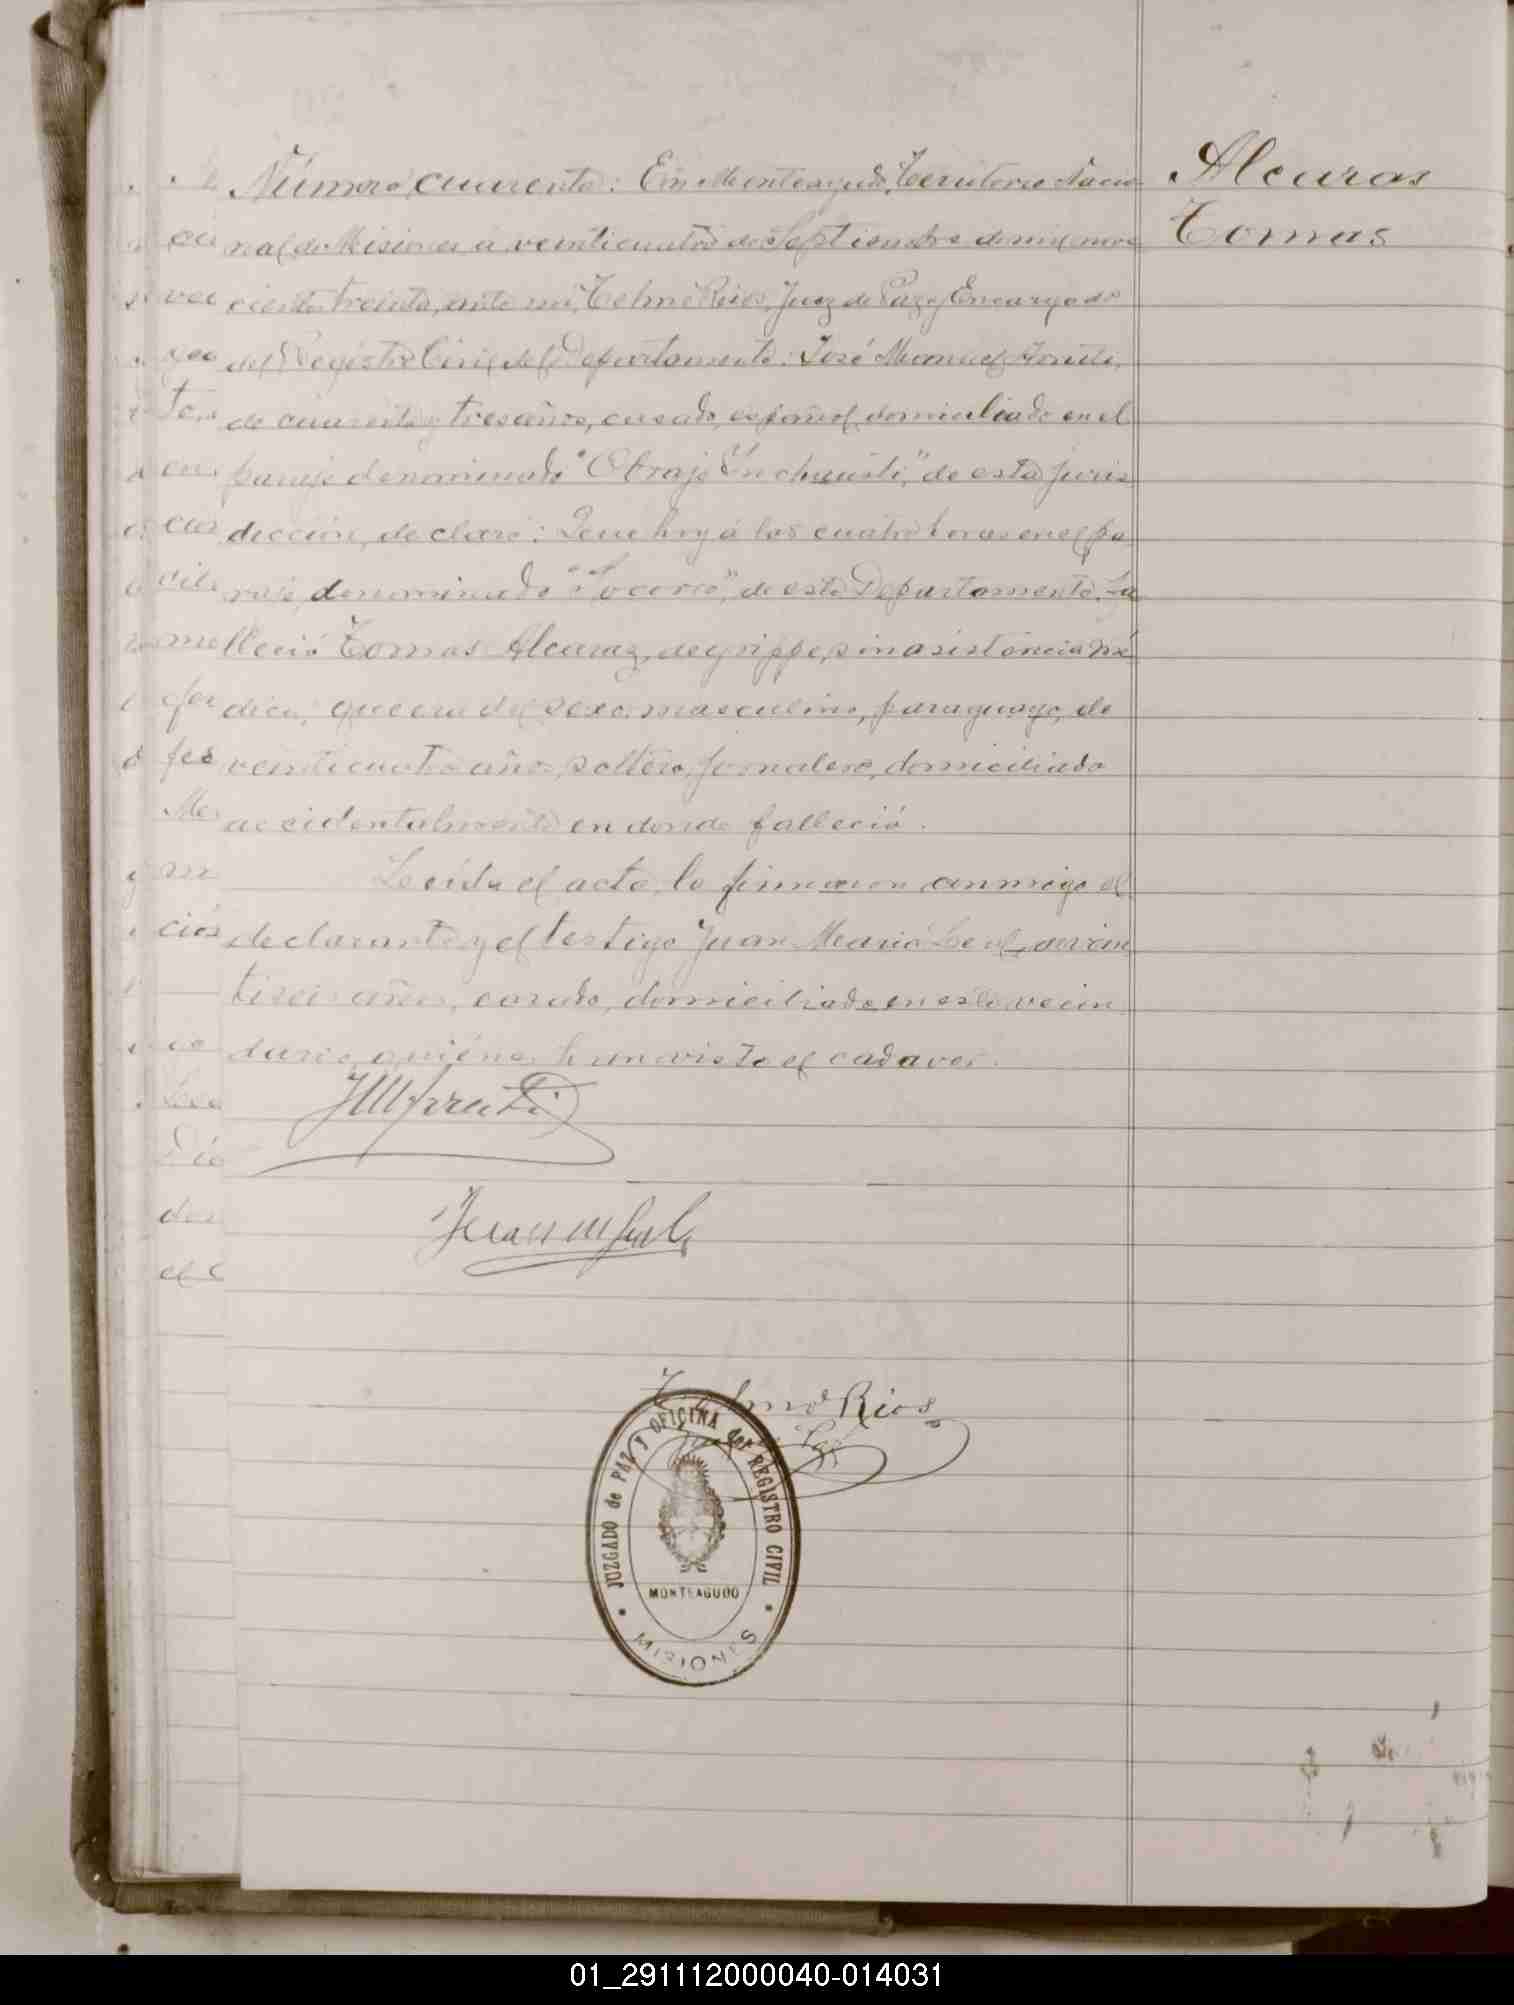 Alcaras
Tomas
Número cuarenta: En Monteagudo, Territorio Nacio
nal de Misiones á veinticuatro de Septiembre de mil nove
cientos treinta, ante mí, Telmo Rios, Juez de Paz y Encargado
del Registro Civil del Departamento: José Manuel Arruti,
de cuarenta y tres años, casado, español, domiciliado en el
paraje denominado "Obraje Enchausti," de esta juris
dicción, declaró: Que hoy á las cuatro horas en el pa
raje denominado "Socorro," de este Departamento, Fa
lleció Tomas Alcaraz, de grippe, sin asistencia mé
dica; que era del sexo masculino, paraguayo, de
veinticuatro años, soltero, jornalero, domiciliado
accidentalmente en donde falleció.
Leída el acta, la firmaron conmigo el
declarante y el testigo Juan María Leal, de vein
tiseis años, casado, domiciliado en este vecin
dario, quiénes han visto el cadaver.
JMArruti
Juan M Leal
Telmo Rios
JUZGADO de PAZ Y OFICINA del REGISTRO CIVIL
MONTEAGUDO
MISIONES
01_291112000040-014031